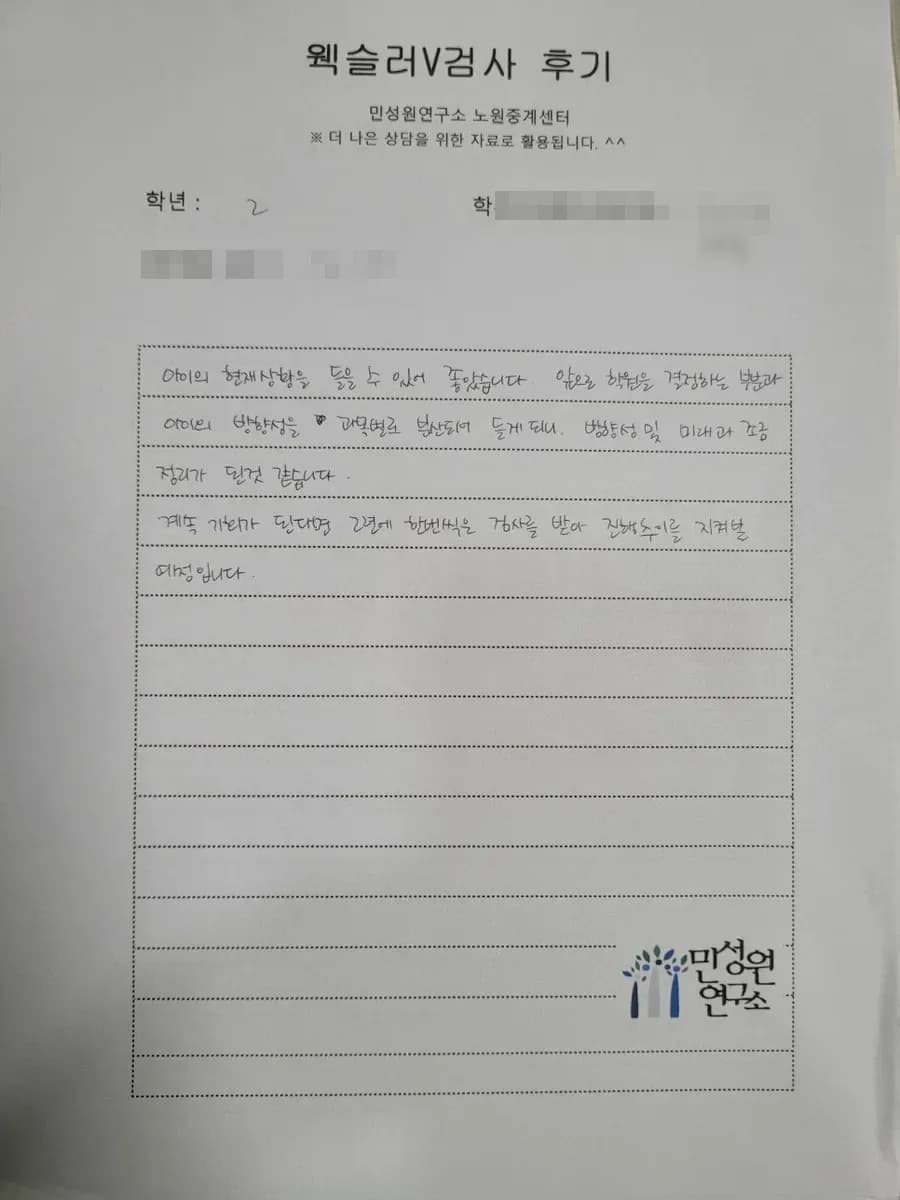 웩슬러V검사 후기
민성원연구소 노원중계센터
※ 더 나은 상담을 위한 자료로 활용됩니다. ^^
학년 : 2 학
아이의 현재상황을 들을 수 있어 좋았습니다. 앞으로 학원을 결정하는 부분과
아이의 방향성을 과목별로 분산되어 듣게되니. 방향성 및 미래과 조금
정리가 된것 같습니다.
계속 기회가 된다면 2년에 한번씩은 검사를 받아 진행추이를 지켜볼
예정입니다.
민성원
연구소